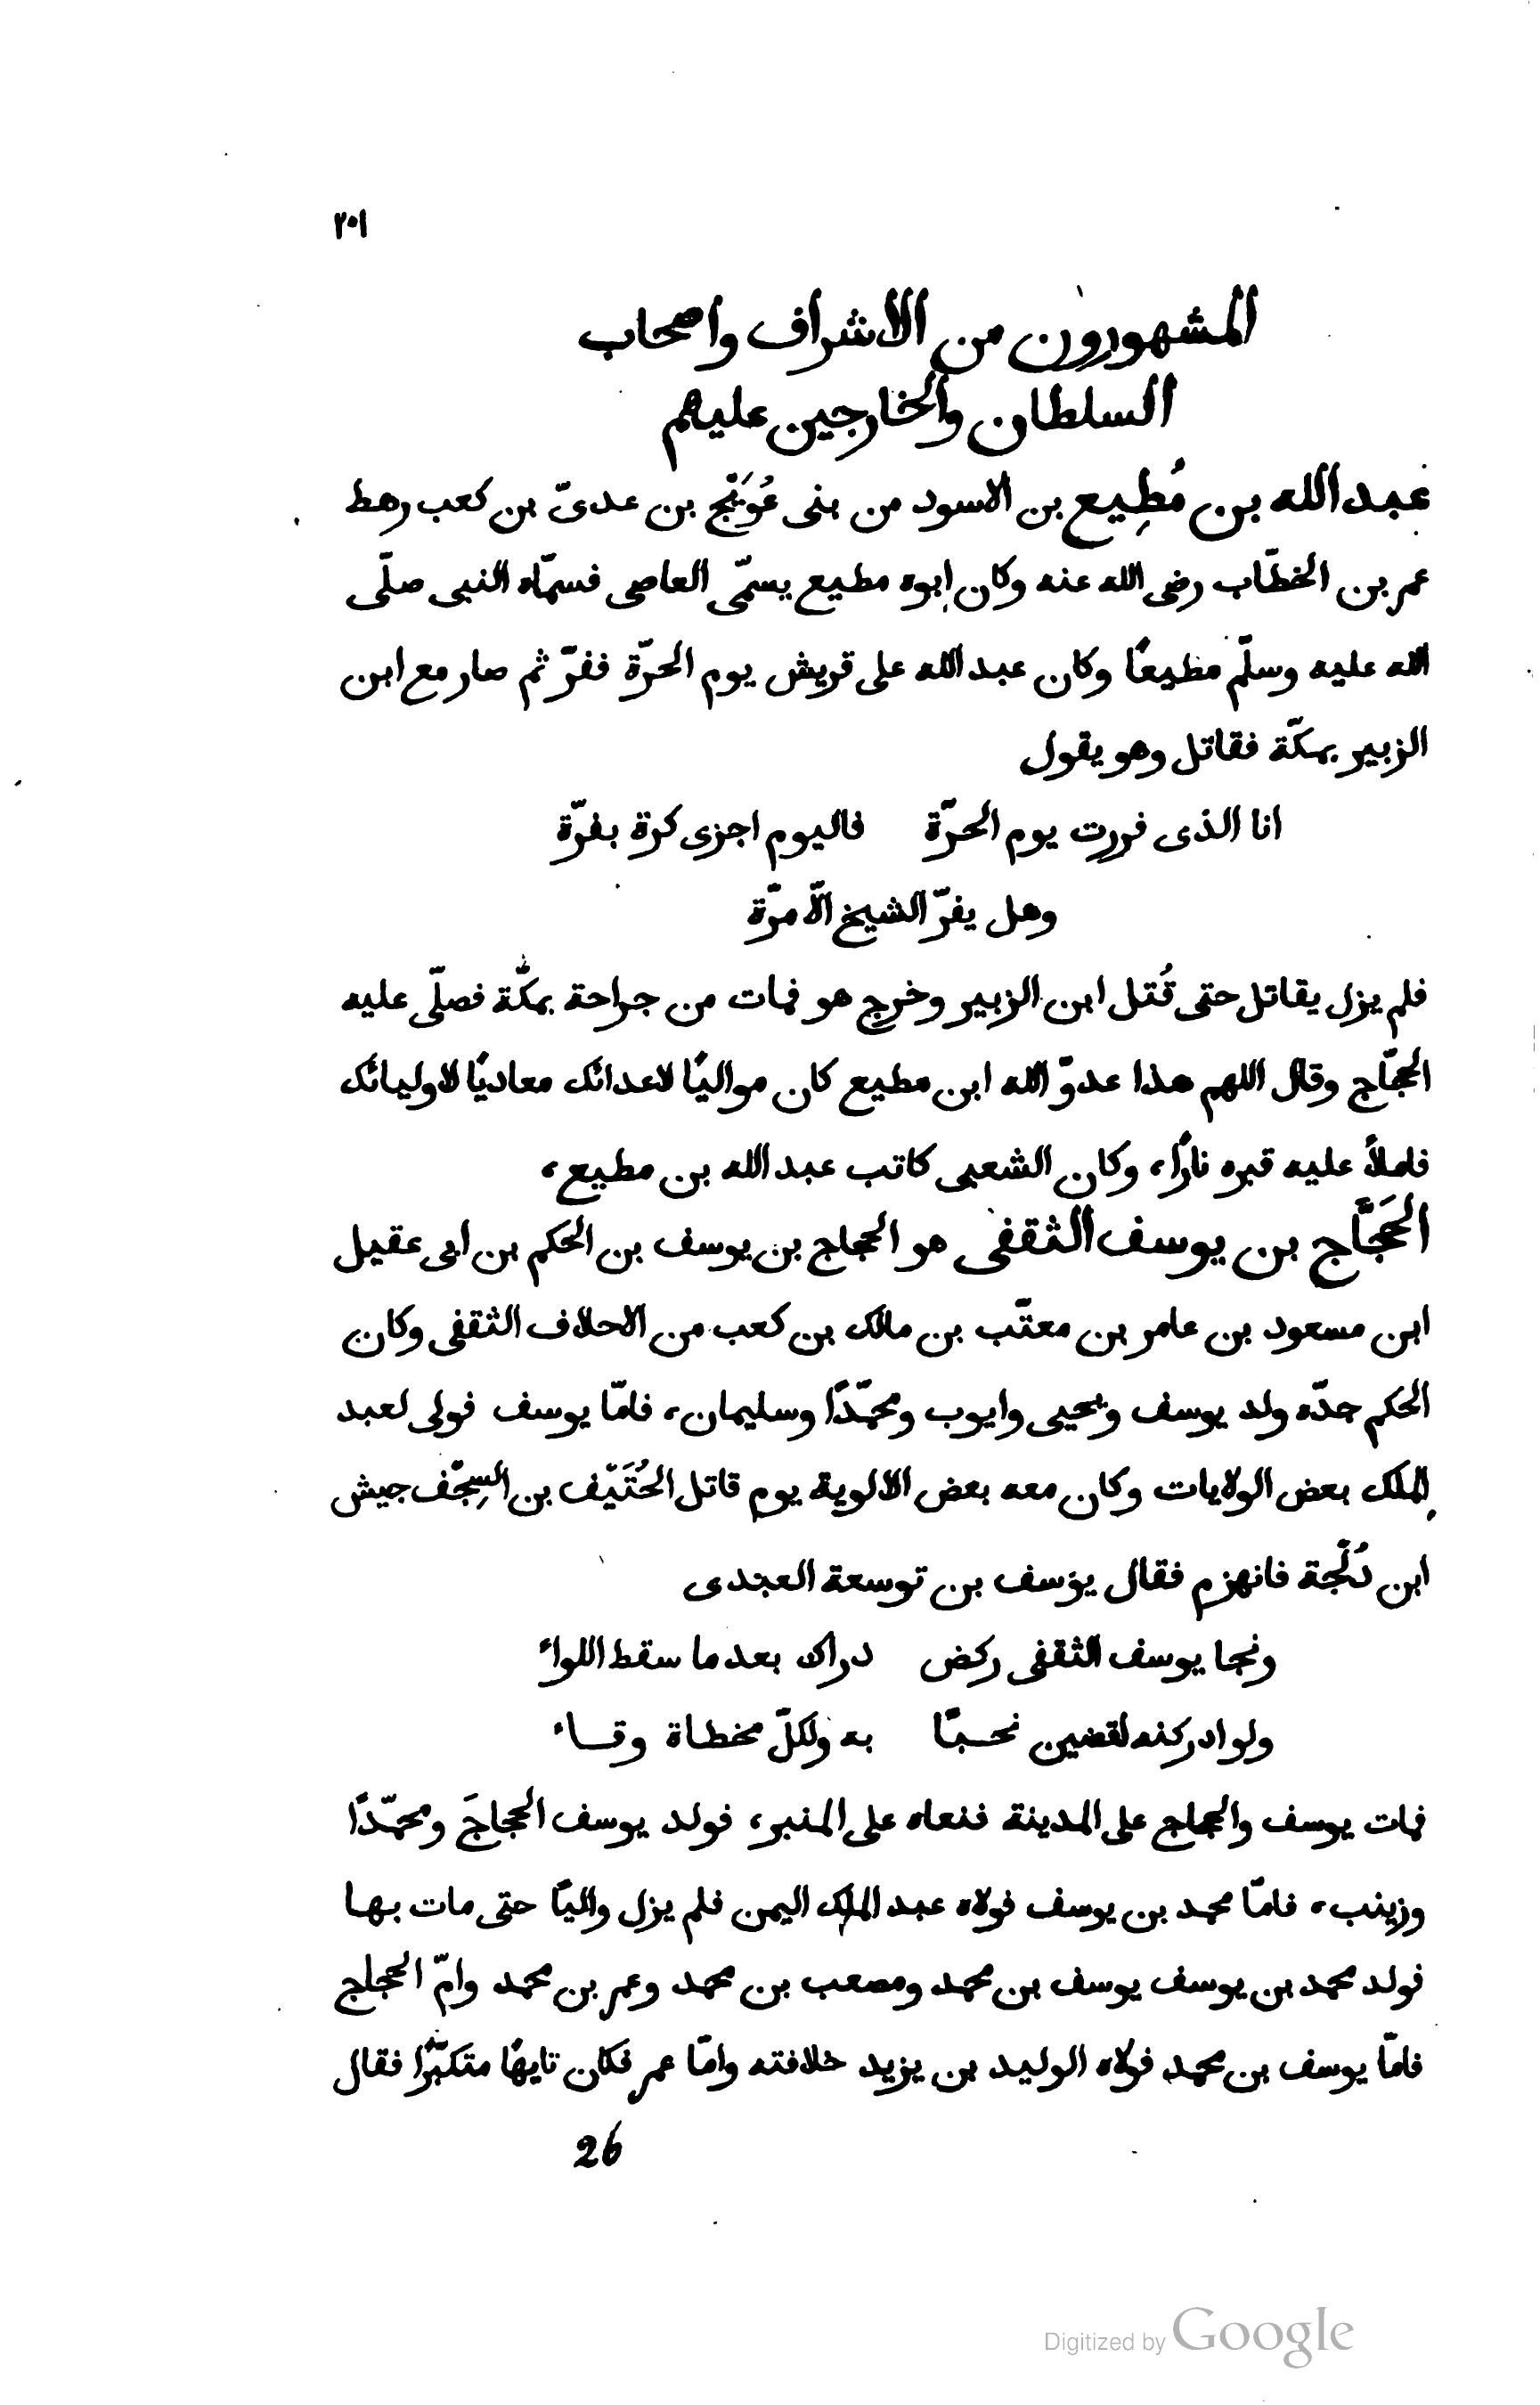 ٢٠١
المشهورون من الاشراف واصحاب
السلطان والخارجين عليهم
عبد الله بن مُطِيع بن الاسود من بنى عُوَيْج بن عدىّ بن كعب رهط
عمر بن الخطّاب رضى الله عنه وكان ابوه مطيع يسمّى العاصى فسمّاه النبى صلّى
الله عليه وسلّم مطيعًا وكان عبد الله على قريش يوم الحرّة ففرّ ثم صار مع ابن
الزبير بمكّة فقاتل وهو يقول
انا الذى فررت يوم الحرّة فاليوم اجزى كرة بفرّة
وهل يفرّ الشيخ الّا مرّة
فلم يزل يقاتل حتى قُتل ابن الزبير وخرج هو فمات من جراحة بمكّة فصلّى عليه
الحجّاج وقال اللهم هذا عدوّ الله ابن مطيع كان مواليًا لاعدائك معاديًا لاوليائك
فاملأ عليه قبره نارًا، وكان الشعبى كاتب عبد الله بن مطيع،
الحَجَّاج بن يوسف الثقفى هو الحجاج بن يوسف بن الحكم بن ابى عقيل
ابن مسعود بن عامر بن معتّب بن مالك بن كعب من الاحلاف الثقفى وكان
الحكم جدّه ولد يوسف ويحيى وايوب ومحمّدًا وسليمان، فامّا يوسف فولى لعبد
الملك بعض الولايات وكان معه بعض الالوية يوم قاتل الحُتَيْف بن السِجْف جيش
ابن دُلْجة فانهزم فقال يوسف بن توسعة العبدى
ونجا يوسف الثقفى ركض دراك بعد ما سقط اللواء
ولو ادركنه لقضين نحبًا به ولكلّ مخطاة وقاء
فمات يوسف والحجاج على المدينة فنعاه على المنبر، فولد يوسف الحجاجَ ومحمّدًا
وزينب، فامّا محمد بن يوسف فولاه عبد الملك اليمن فلم يزل واليًا حتى مات بها
فولد محمد بن يوسف يوسف بن محمد ومصعب بن محمد وعمر بن محمد وامّ الحجاج
فامّا يوسف بن محمد فولاه الوليد بن يزيد خلافته وامّا عمر فكان تايهًا متكبّرًا فقال
26
Digitized by Google